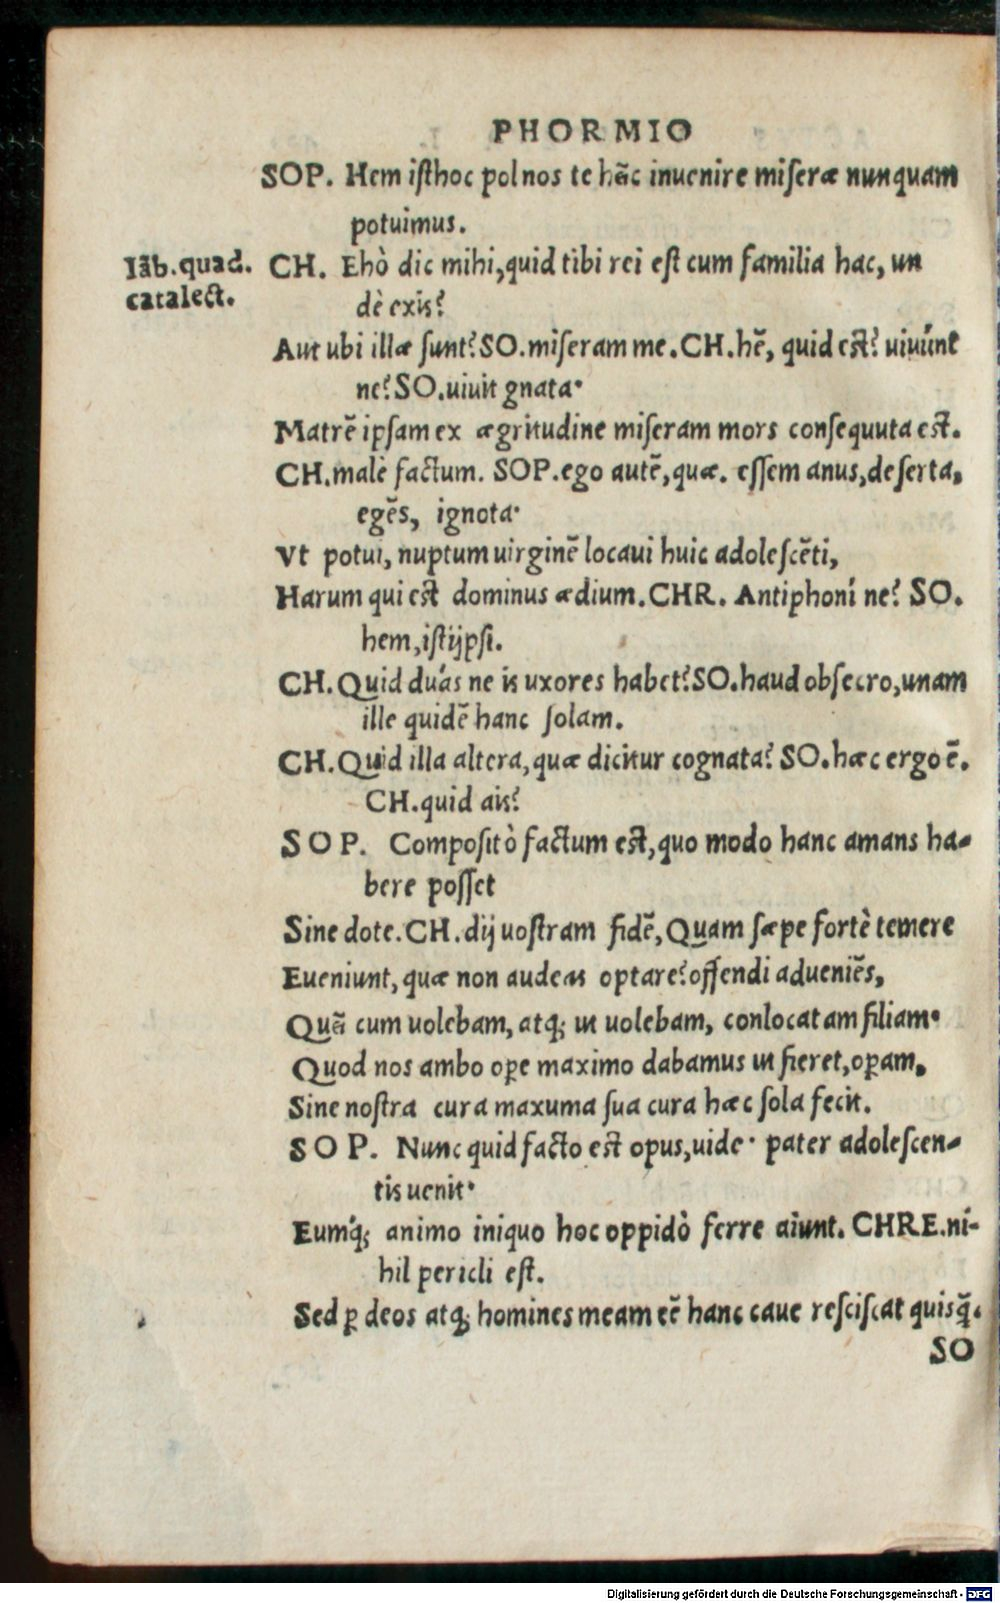 PHORMIO
SOP. Hem isthoc pol nos te hāc inuenire miseræ nunquam
potuimus.
Iāb. quad.
catalect.
CH. Ehò dic mihi, quid tibi rei est cum familia hac, un
dè exis?
Aut ubi illæ sunt? SO. miseram me. CH. hē, quid est? uiuúnt
ne? SO. uiuit gnata.
Matrē ipsam ex ægritudine miseram mors consequuta est.
CH. malè factum. SOP. ego autē, quæ. essem anus, deserta,
egēs, ignota.
Vt potui, nuptum uirginē locaui huic adolescēti,
Harum qui est dominus ædium. CHR. Antiphoní ne? SO.
hem, istijpsi.
CH. Quid duás ne is uxores habet? SO. haud obsecro, unam
ille quidē hanc solam.
CH. Quid illa altera, quæ dicitur cognata? SO. hæc ergo ē.
CH. quid ais?
SOP. Compositò factum est, quo modo hanc amans ha-
bere posset
Sine dote. CH. dij uostram fidē, Quam sæpe fortè temere
Eueniunt, quæ non audeas optare? offendi adueniēs,
Quā cum uolebam, atq; ut uolebam, conlocatam filiam.
Quod nos ambo oꝑe maximo dabamus ut fieret, oꝑam,
Sine nostra cura maxuma sua cura hæc sola fecit.
SOP. Nunc quid facto est opus, uide. pater adolescen-
tis uenit.
Eumq́; animo iniquo hoc oppidò ferre aiunt. CHRE. ni-
hil pericli est.
Sed ꝑ deos atq; homines meam eē hanc caue resciscat quisq̄.
SO
Digitalisierung gefördert durch die Deutsche Forschungsgemeinschaft - DFG